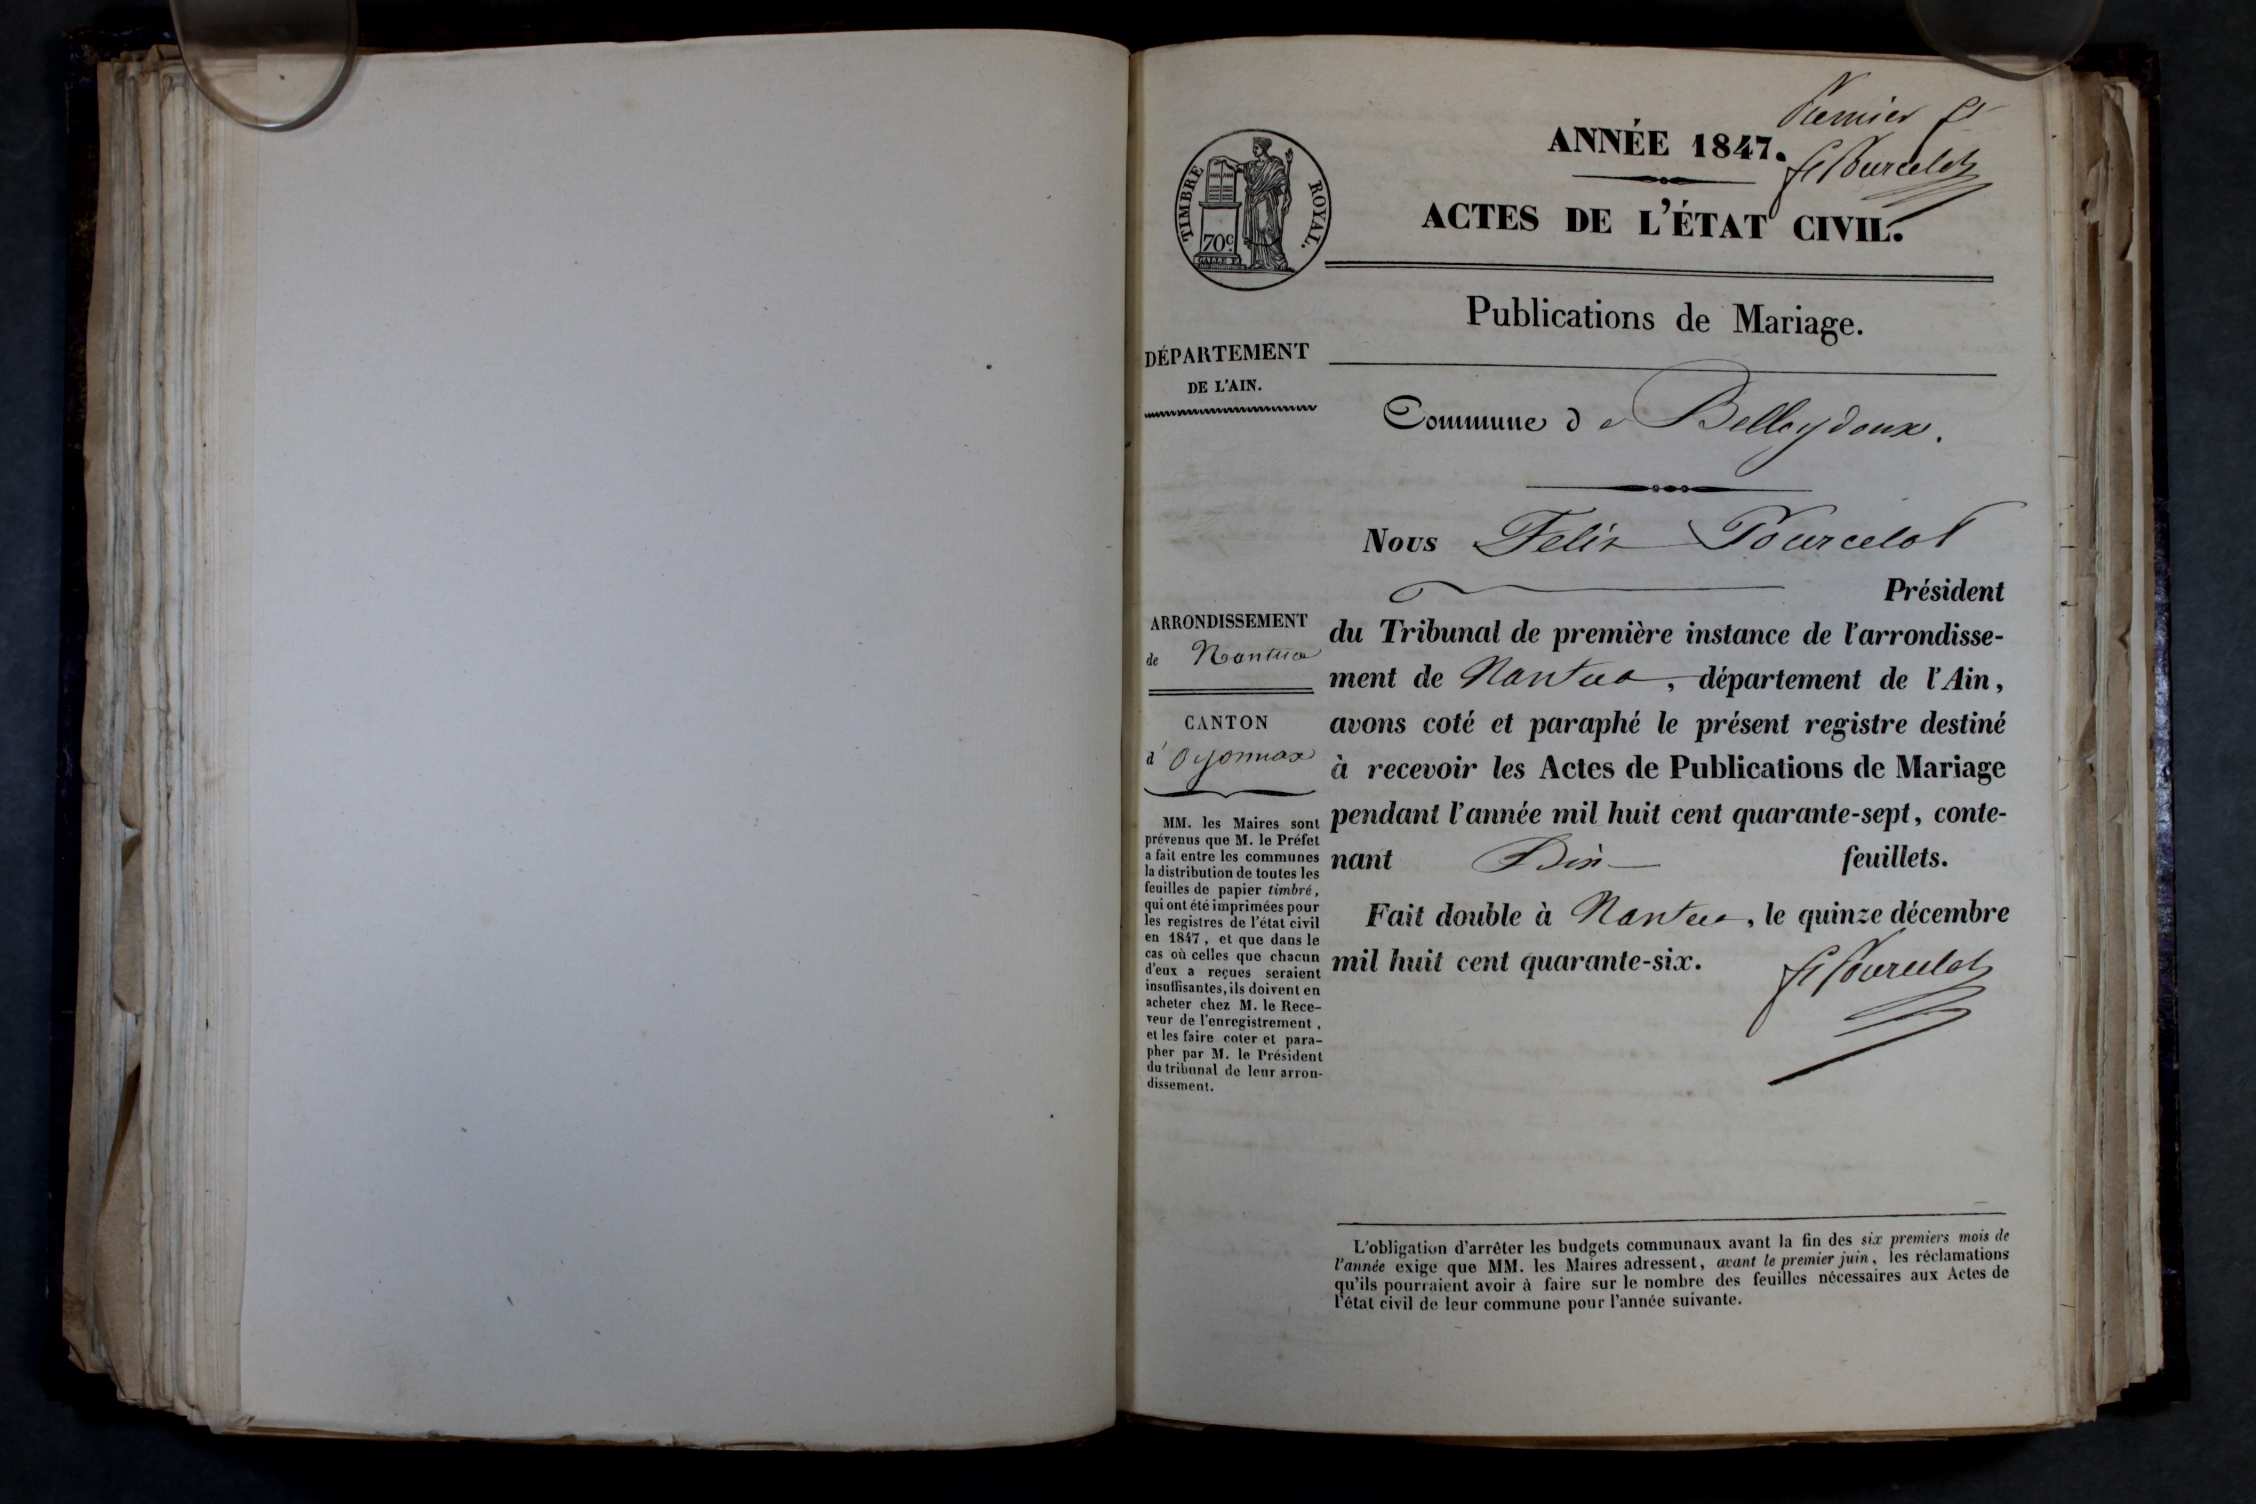 Premier ft
F Pourcelot
ANNÉE 1847.
TIMBRE ROYAL.
70c
GALLE F.
ACTES DE L'ÉTAT CIVIL.
Publications de Mariage.
DÉPARTEMENT
DE L'AIN.
Commune de Belleydoux.
Nous Felix Pourcelot
Président
du Tribunal de première instance de l'arrondisse-
ment de Nantua, département de l'Ain,
avons coté et paraphé le présent registre destiné
à recevoir les Actes de Publications de Mariage
pendant l'année mil huit cent quarante-sept, conte-
nant Dix feuillets.
Fait double à Nantua, le quinze décembre
mil huit cent quarante-six.
F Pourcelot
ARRONDISSEMENT
de Nantua
CANTON
d'Oyonnax
MM. les Maires sont
prévenus que M. le Préfet
a fait entre les communes
la distribution de toutes les
feuilles de papier timbré,
qui ont été imprimées pour
les registres de l'état civil
en 1847, et que dans le
cas où celles que chacun
d'eux a reçues seraient
insuffisantes, ils doivent en
acheter chez M. le Rece-
veur de l'enregistrement,
et les faire coter et para-
pher par M. le Président
du tribunal de leur arron-
dissement.
L'obligation d'arrêter les budgets communaux avant la fin des six premiers mois de
l'année exige que MM. les Maires adressent, avant le premier juin, les réclamations
qu'ils pourraient avoir à faire sur le nombre des feuilles nécessaires aux Actes de
l'état civil de leur commune pour l'année suivante.